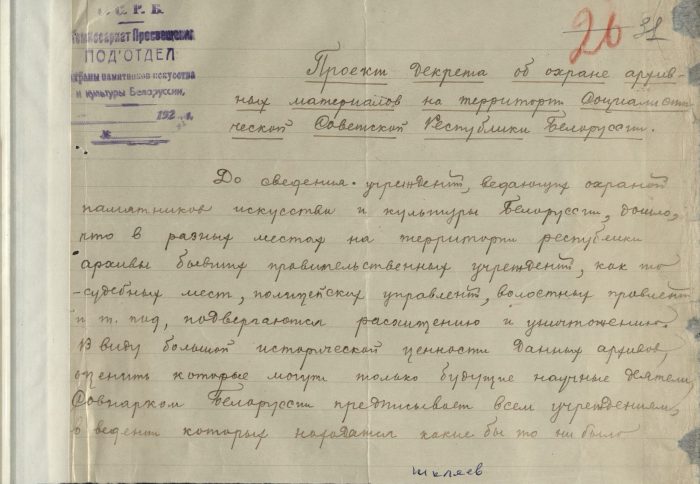 С.С.Р.Б.
Комиссариат Просвещения
ПОД'ОТДЕЛ
охраны памятников искусства
и культуры Белоруссии,
192 г.
№
26
31
Проект декрета об охране архив-
ных материалов на территории Социалисти
ческой Советской Республики Белоруссии.
До сведения учреждений, ведающих охраной
памятников искусства и культуры Белоруссии, дошло,
что в разных местах на территории республики
архивы бывших правительственных учреждений, как то
-судебных мест, полицейских управлений, волостных правлений
и т. под, подвергаются расхищению и уничтожению.
В виду большой исторической ценности данных архивов,
оценить которые могут только будущие научные деятели
Совнарком Белоруссии предписывает всем учреждениям,
в ведении которых находятся какие бы то ни было
шкляев